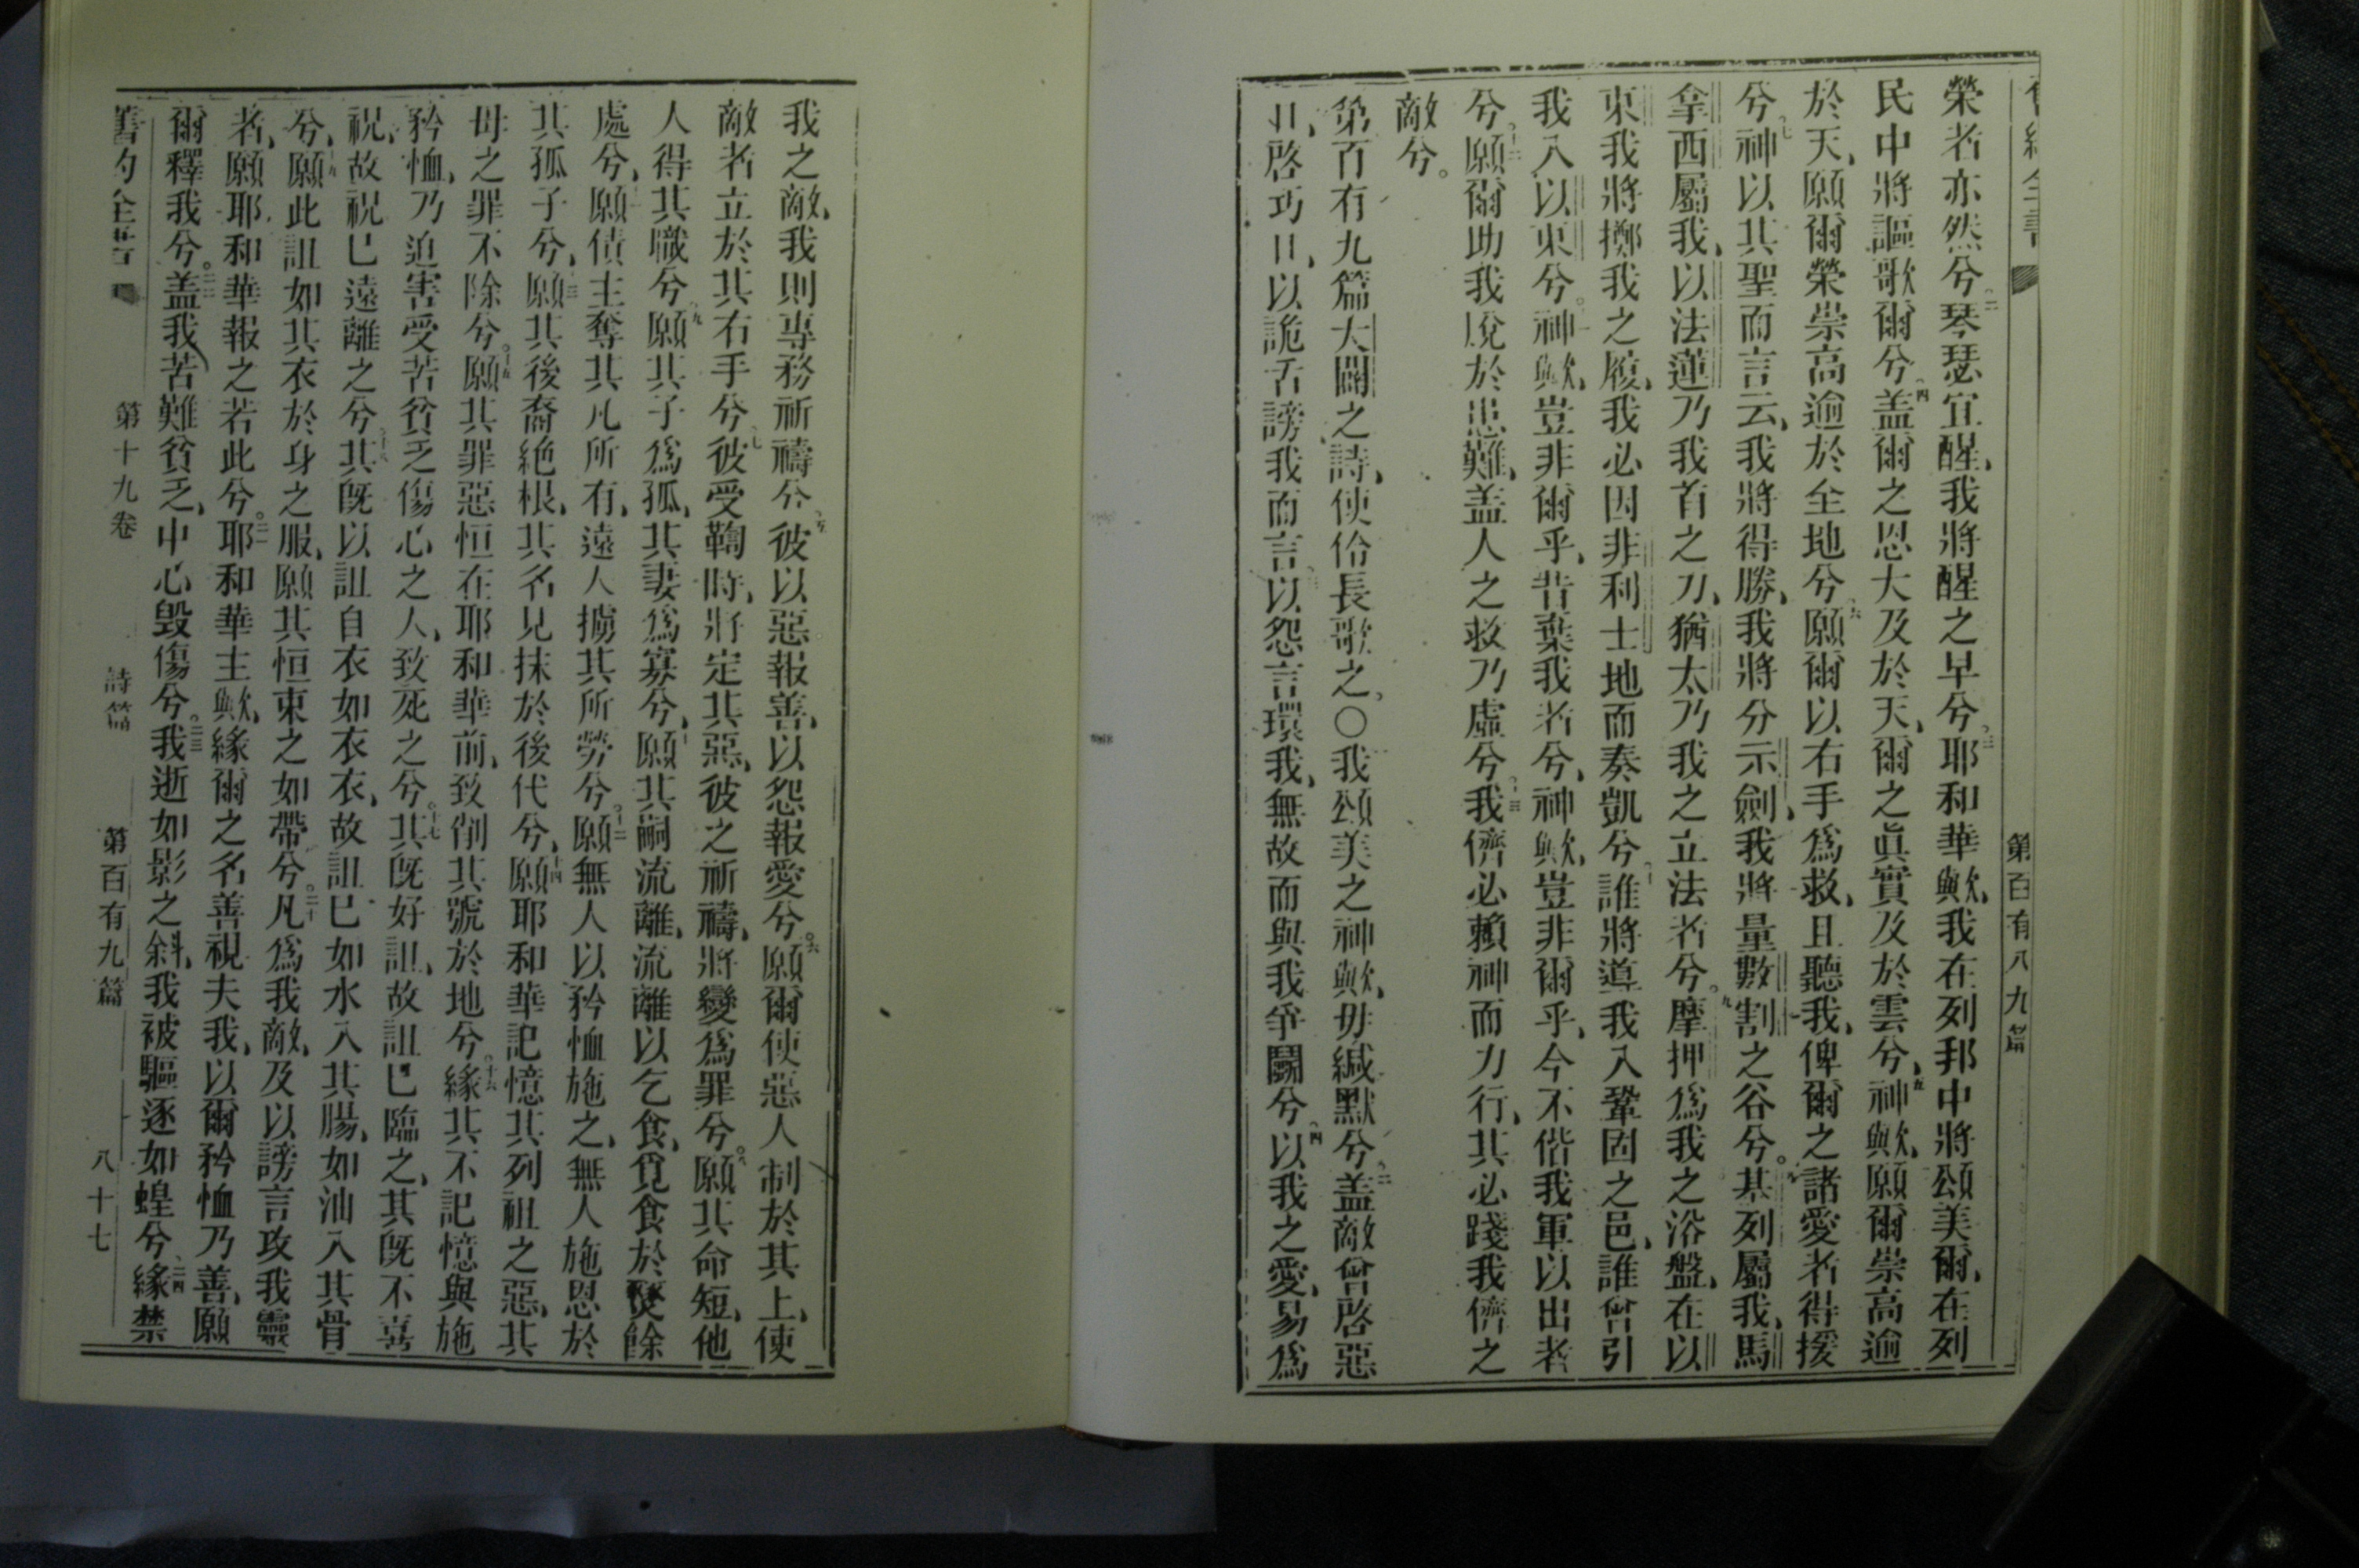 第百有八九篇
榮者亦然兮。二琴瑟宜醒、我將醒之早兮。三耶和華歟、我在列邦中將頌美爾、在列
民中將謳歌爾兮、四盖爾之恩大及於天、爾之眞實及於雲兮、五神歟、願爾崇高逾
於天、願爾榮崇高逾於全地兮、六願爾以右手爲救、且聽我、俾爾之諸愛者得援
兮、七神以其聖而言云、我將得勝、我將分示劍、我將量數割之谷兮。八基列屬我、馬
拿西屬我、以法蓮乃我首之力、猶太乃我之立法者兮。九摩押爲我之浴盤、在以
東我將擲我之履、我必因非利士地而奏凱兮、十誰將導我入鞏固之邑、誰曾引
我入以東兮。十一神歟、豈非爾乎、昔棄我者兮、神歟、豈非爾乎、今不偕我軍以出者
兮、十二願爾助我脫於患難、盖人之救乃虛兮、十三我儕必賴神而力行、其必踐我儕之
敵兮。
第百有九篇大闢之詩、使伶長歌之、○我頌美之神歟、毋緘默兮、二盖敵曾啓惡
口、啓巧口、以詭舌謗我而言、三以怨言環我、無故而與我爭鬭兮、四以我之愛、易爲
我之敵、我則專務祈禱兮、五彼以惡報善、以怨報愛兮。六願爾使惡人制於其上、使
敵者立於其右手兮、七彼受鞫時、將定其惡、彼之祈禱、將變爲罪兮。八願其命短、他
人得其職兮、九願其子爲孤、其妻爲寡兮、十願其嗣流離、流離以乞食、覓食於燹餘
處兮、十一願債主奪其凡所有、遠人擄其所勞兮、十二願無人以矜恤施之、無人施恩於
其孤子兮、十三願其後裔絶根、其名見抹於後代兮、十四願耶和華記憶其列祖之惡、其
母之罪不除兮。十五願其罪惡恒在耶和華前、致削其號於地兮。十六緣其不記憶與施
矜恤、乃迫害受苦貧乏傷心之人、致死之兮。十七其旣好詛、故詛巳臨之、其旣不喜
祝、故祝巳遠離之兮、十八其旣以詛自衣如衣衣、故詛巳如水入其腸、如油入其骨
兮、十九願此詛如其衣於身之服、願其恒束之如帶兮。二十凡爲我敵、及以謗言攻我靈
者、願耶和華報之若此兮。二一耶和華主歟、緣爾之名善視夫我、以爾矜恤乃善、願
爾釋我兮。二二盖我苦難貧乏、中心毀傷兮。二三我逝如影之斜、我被驅逐如蝗兮、二四緣禁
第十九卷 詩篇 第百有九篇 八十七